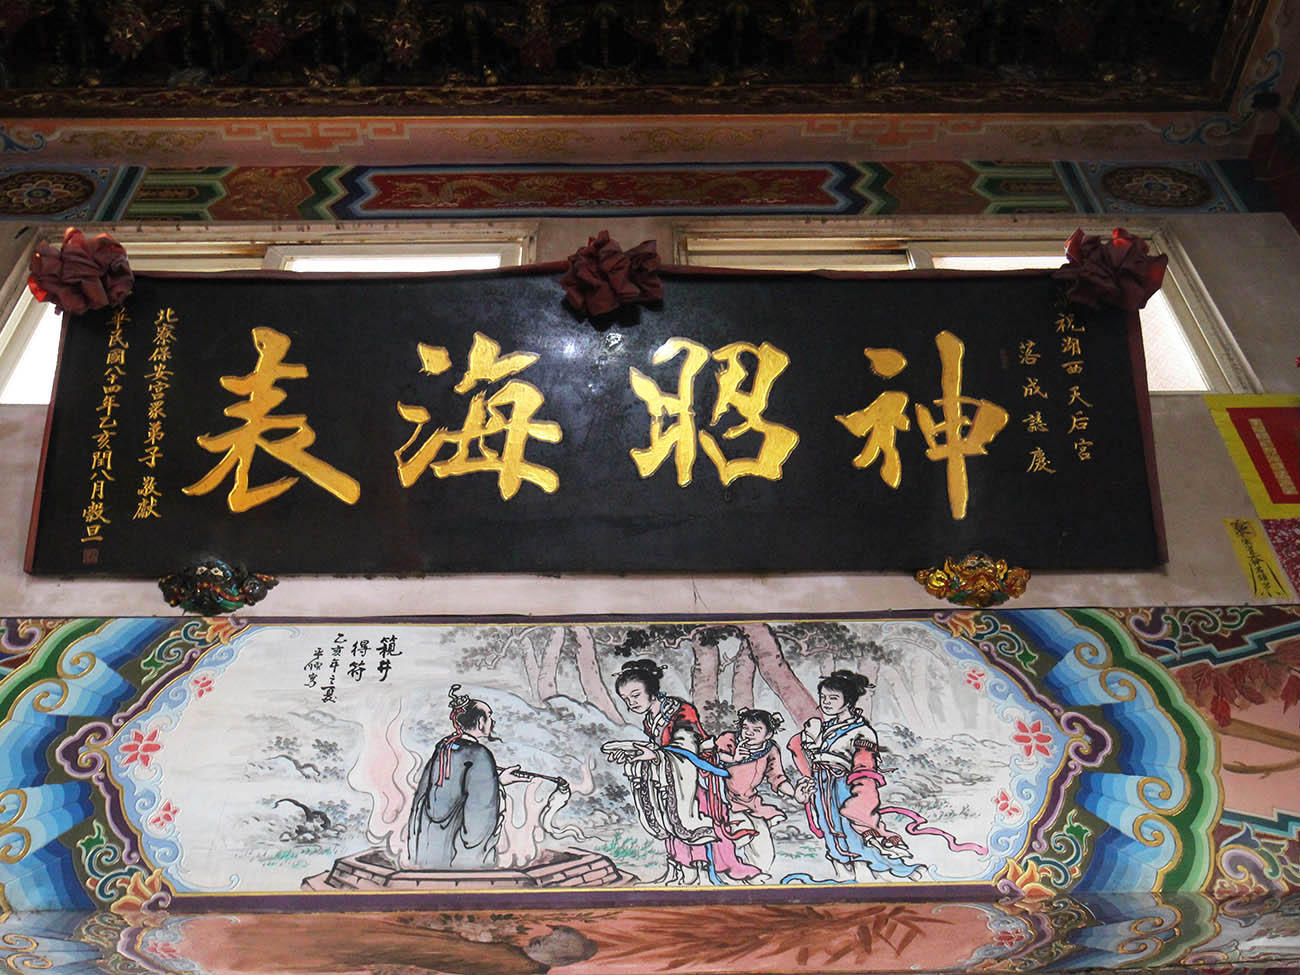 祝湖西天后宮
落成誌慶
神昭海表
北寮保安宮眾弟子敬獻
華民國八十四年乙亥閏八月穀旦
窺井
得符
乙亥年之夏